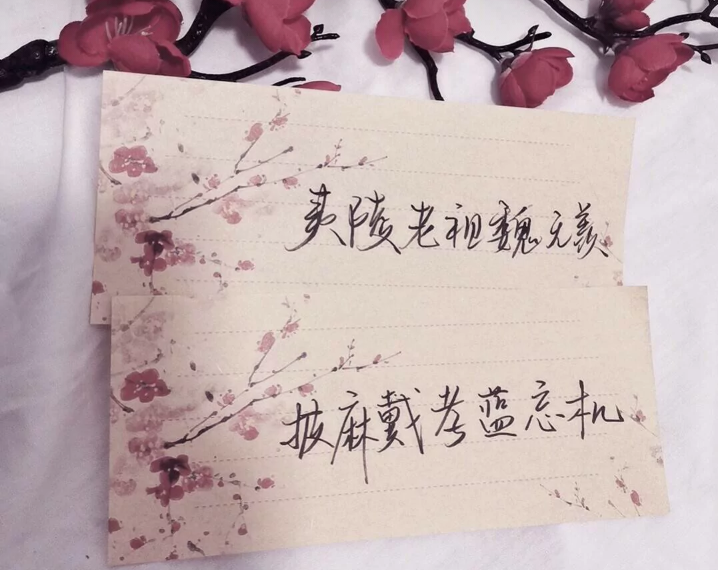 夷陵老祖魏无羡
披麻戴孝蓝忘机